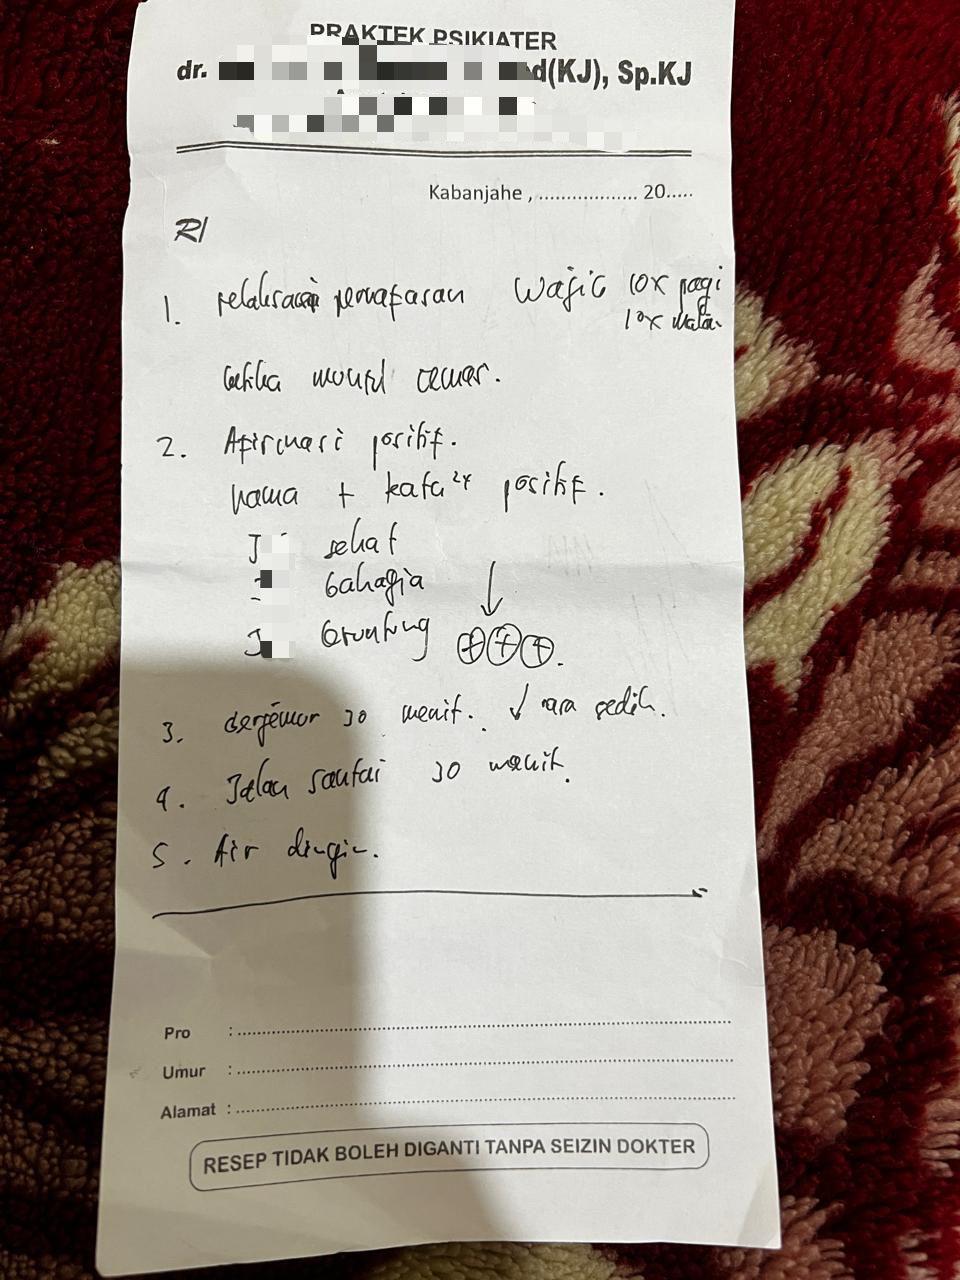 PRAKTEK PSIKIATER
dr. d(KJ), Sp.KJ
Kabanjahe , .................. 20.....
R/
1. relaksasi pernafasan Wajib 10x pagi
10x malam
ketika muncul cemas.
2. Afirmasi positif.
nama + kata2x positif.
J sehat
bahagia ↓
J beruntung ⊕⊕⊕.
3. berjemur 30 menit. ↓ rasa sedih.
4. Jalan santai 30 menit.
5. Air dingin.
Pro :
Umur :
Alamat :
RESEP TIDAK BOLEH DIGANTI TANPA SEIZIN DOKTER